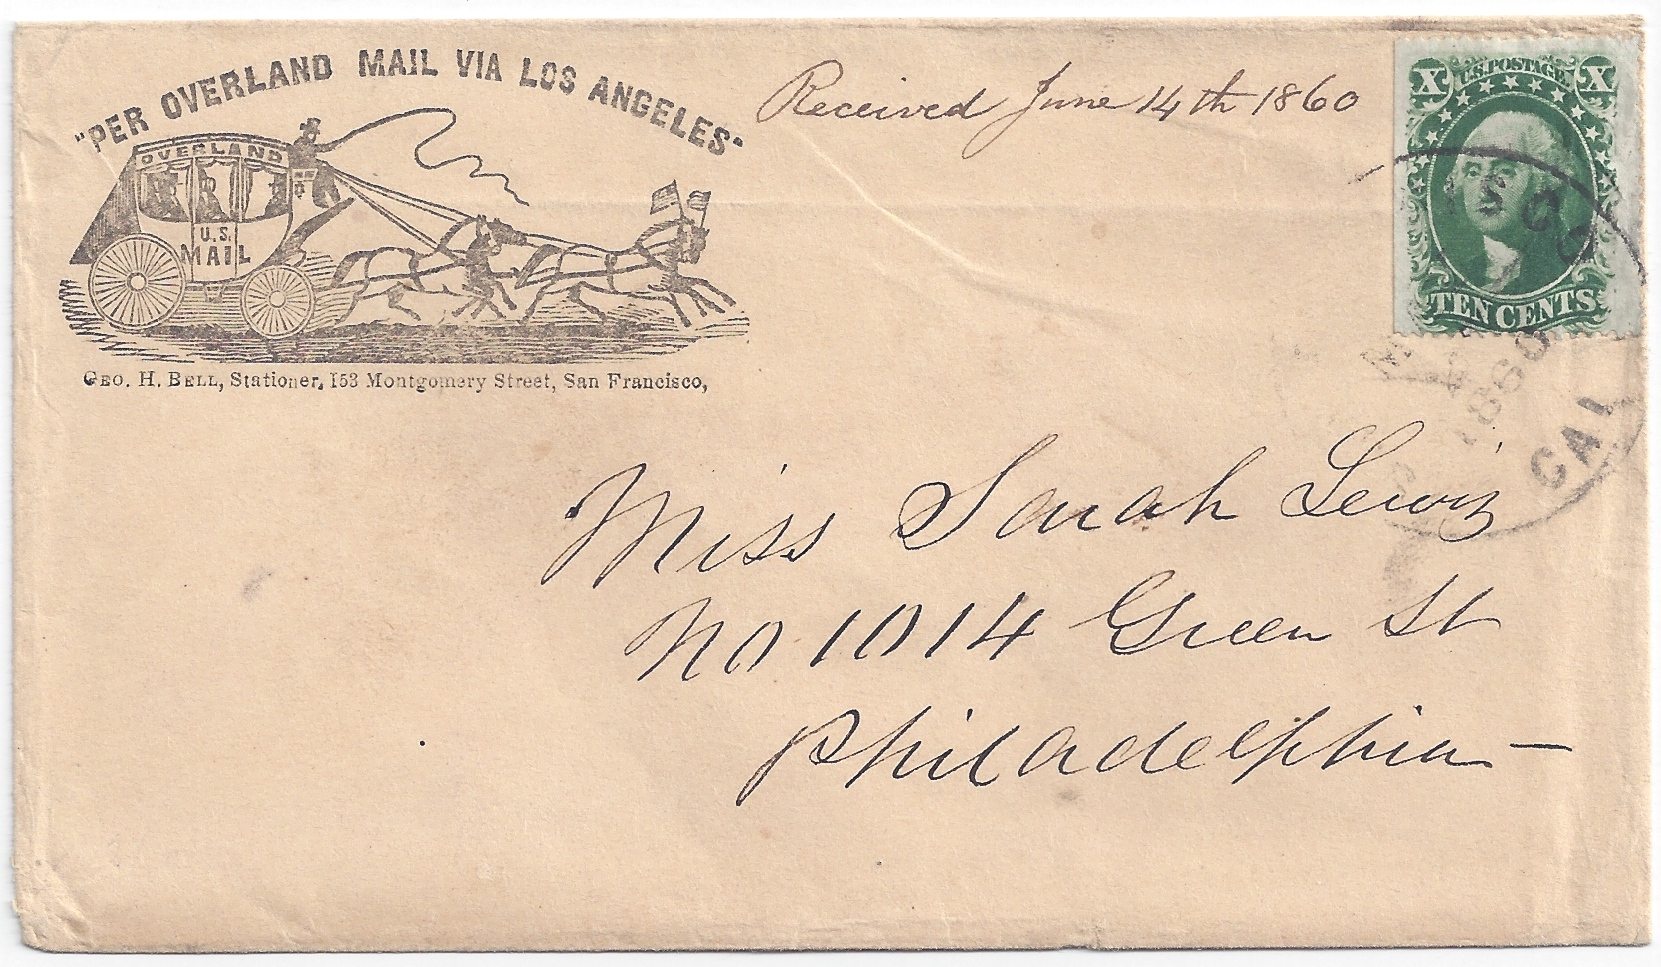 "PER OVERLAND MAIL VIA LOS ANGELES"
Received June 14th 1860
OVERLAND
U.S.
MAIL
GEO. H. BELL, Stationer, 153 Montgomery Street, San Francisco,
X U.S. POSTAGE. X
TEN CENTS
ISCO
1860
CAL
Miss Sarah Lewis
No 1014 Green St
Philadelphia